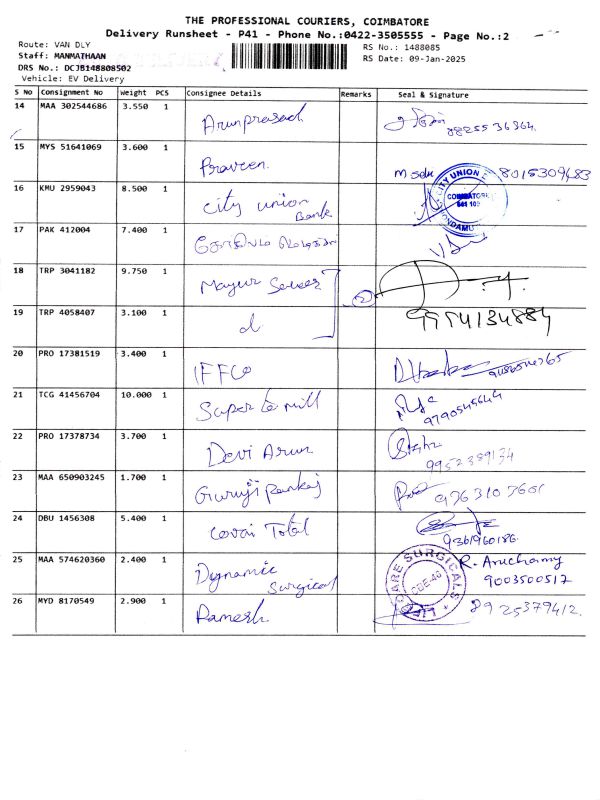 THE PROFESSIONAL COURIERS, COIMBATORE
Delivery Runsheet - P41 - Phone No.:0422-3505555 - Page No.:2
Route: VAN DLY
RS No.: 1488085
Staff: MANMATHAAN
RS Date: 09-Jan-2025
DRS No.: DCJB148808502
Vehicle: EV Delivery
S No Consignment No Weight PCS Consignee Details Remarks Seal & Signature
14 MAA 302544686 3.550 1 Arunprasad
15 MYS 51641069 3.600 1 Praveen. 8015309683
CITY UNION
COIMBATORE
641 109
16 KMU 2959043 8.500 1 city union Bank
17 PAK 412004 7.400 1
18 TRP 3041182 9.750 1 Mayur 2
19 TRP 4058407 3.100 1 d 9994134884
20 PRO 17381519 3.400 1 IFFCO
21 TCG 41456704 10.000 1 Super mill 9790545644
22 PRO 17378734 3.700 1 Devi Arun 9952389134
23 MAA 650903245 1.700 1 Guruji Pankaj
24 DBU 1456308 5.400 1 Covai Total 9361960186.
25 MAA 574620360 2.400 1 Dynamic Surgical R. Aruchamy 9003500517
CARE SURGICALS
CBE-46
26 MYD 8170549 2.900 1 Ramesh 8925379412.